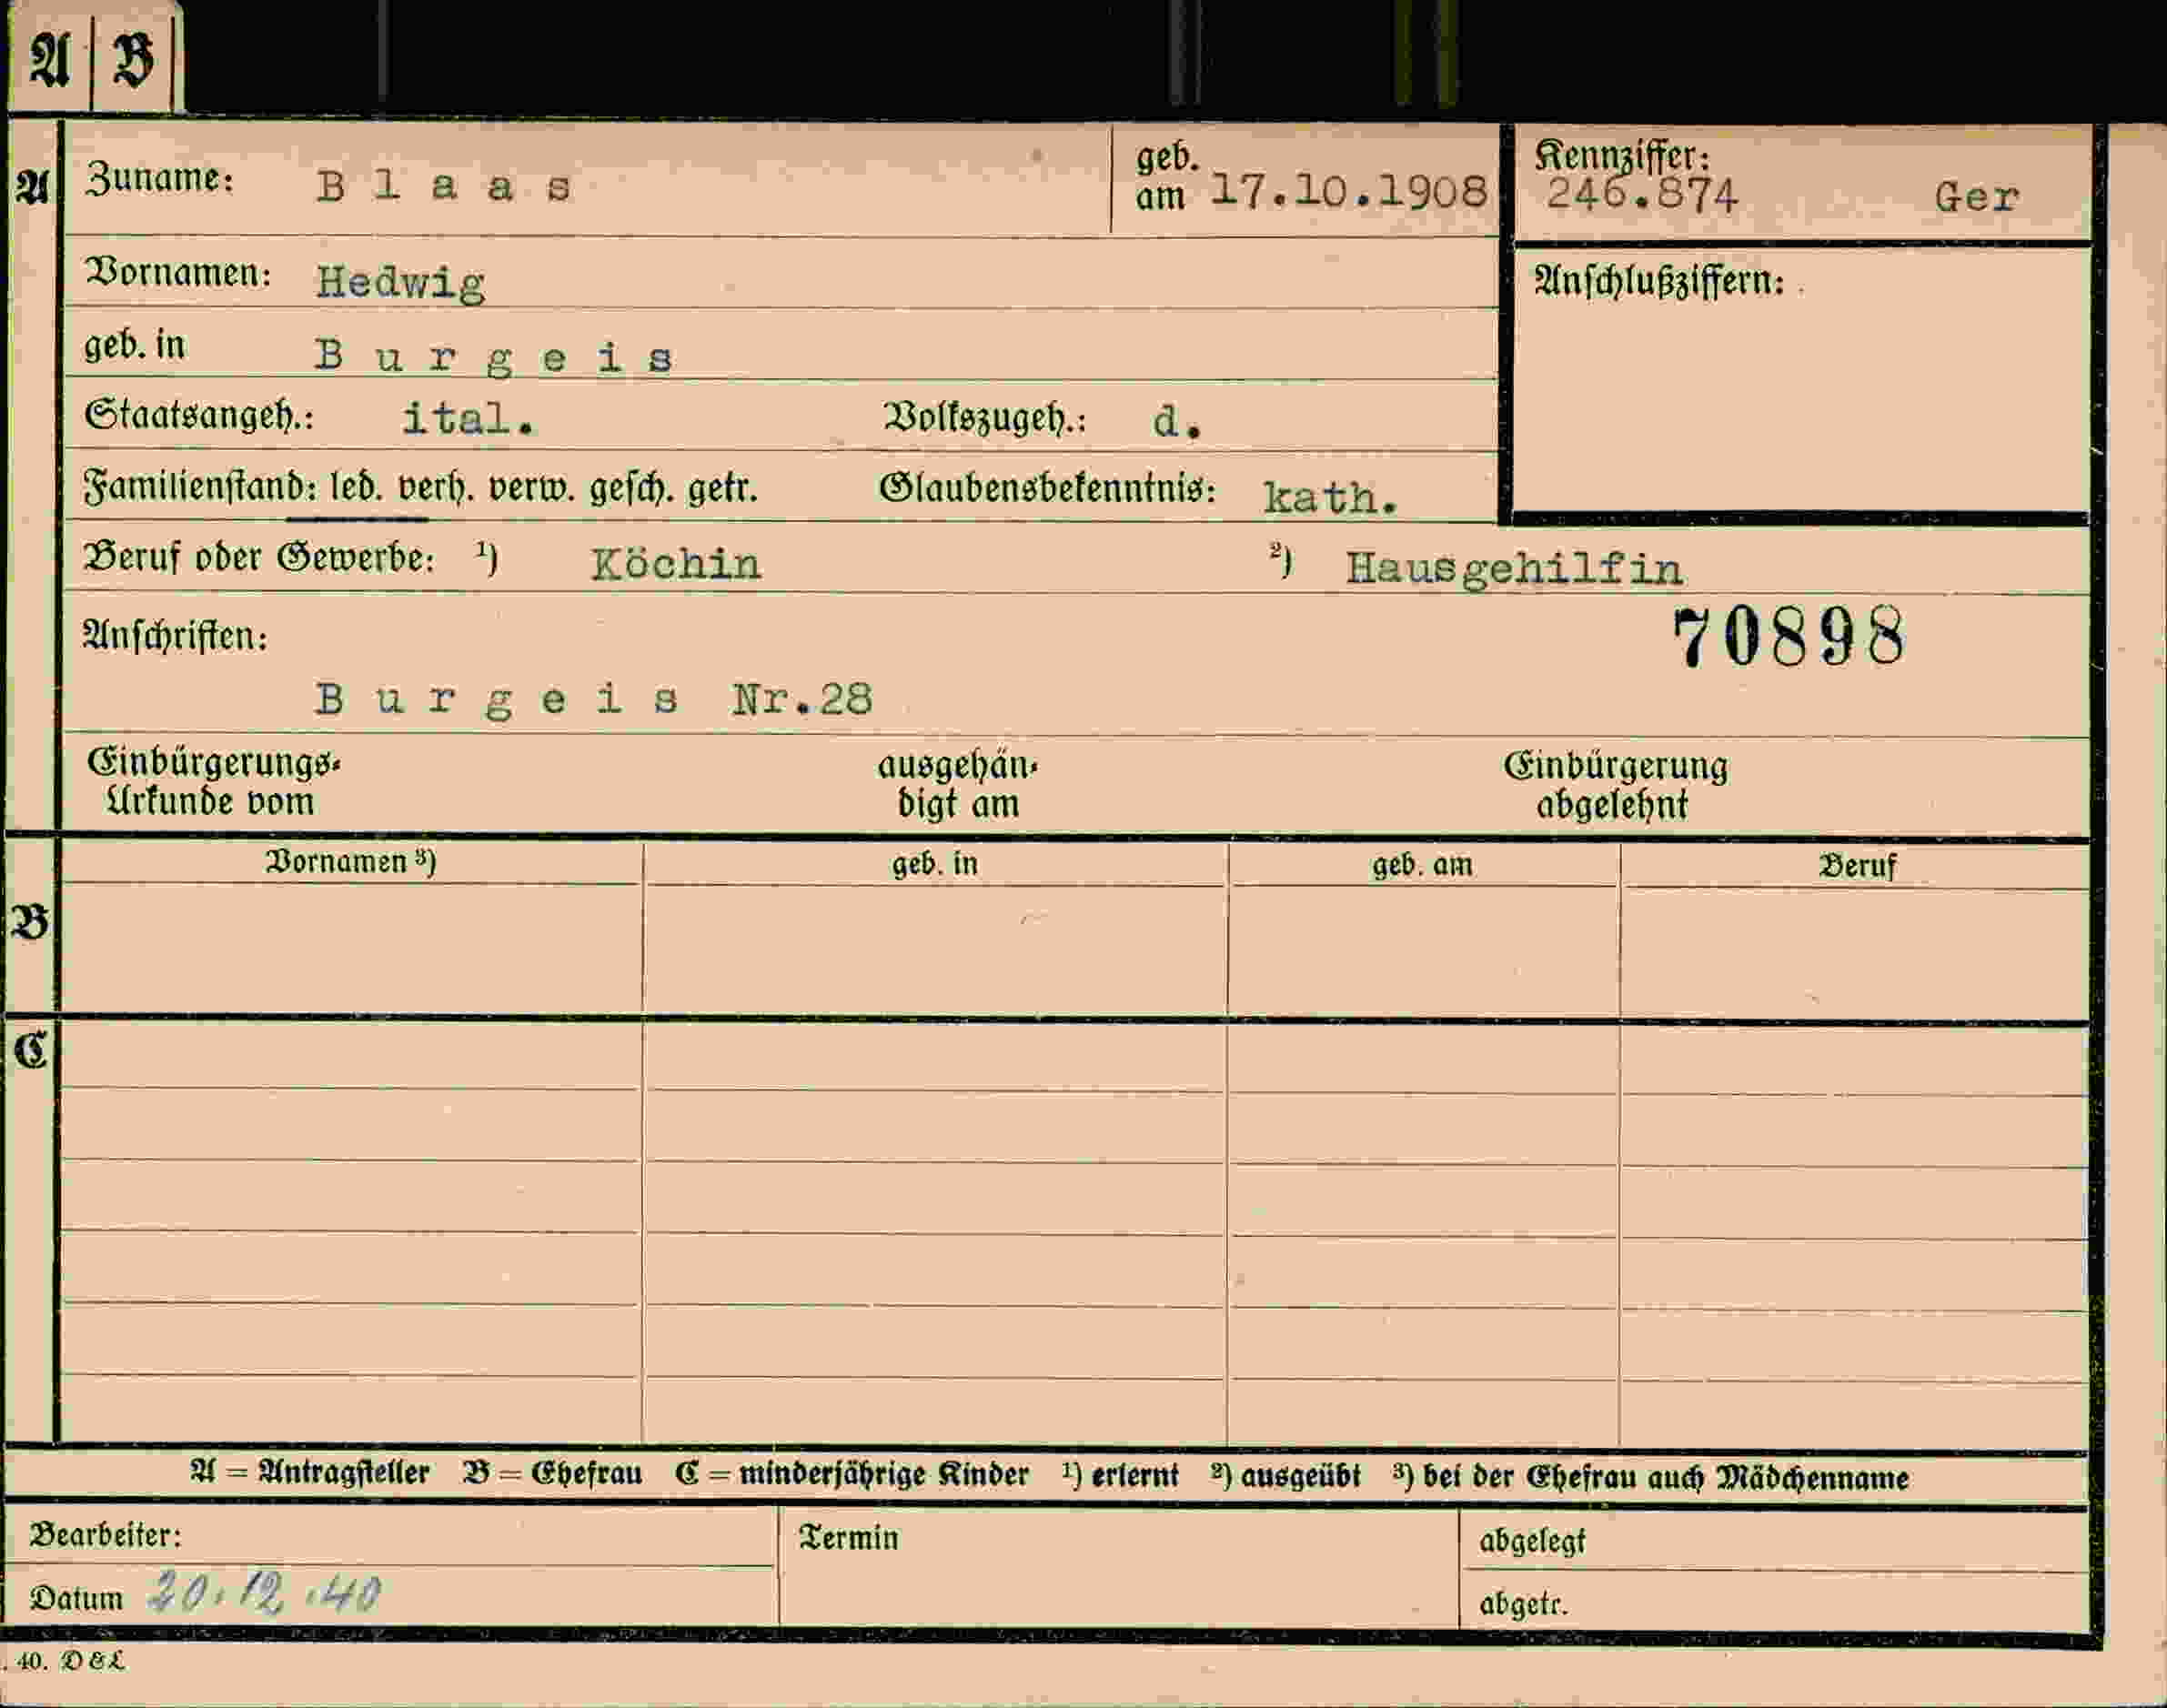 A B
A Zuname: Blaas geb. am 17.10.1908 Kennziffer: 246.874 Ger
Vornamen: Hedwig Anschlußziffern:
geb. in Burgeis
Staatsangeh.: ital. Volkszugeh.: d.
Familienstand: led. verh. verw. gesch. getr. Glaubensbekenntnis: kath.
Beruf oder Gewerbe: ¹) Köchin ²) Hausgehilfin
Anschriften: 70898
Burgeis Nr.28
Einbürgerungs- ausgehän- Einbürgerung
Urkunde vom digt am abgelehnt
Vornamen ³) geb. in geb. am Beruf
B
C
A = Antragsteller B = Ehefrau C = minderjährige Kinder ¹) erlernt ²) ausgeübt ³) bei der Ehefrau auch Mädchenname
Bearbeiter: Termin abgelegt
Datum 20.12.40 abgetr.
. 40. D & L